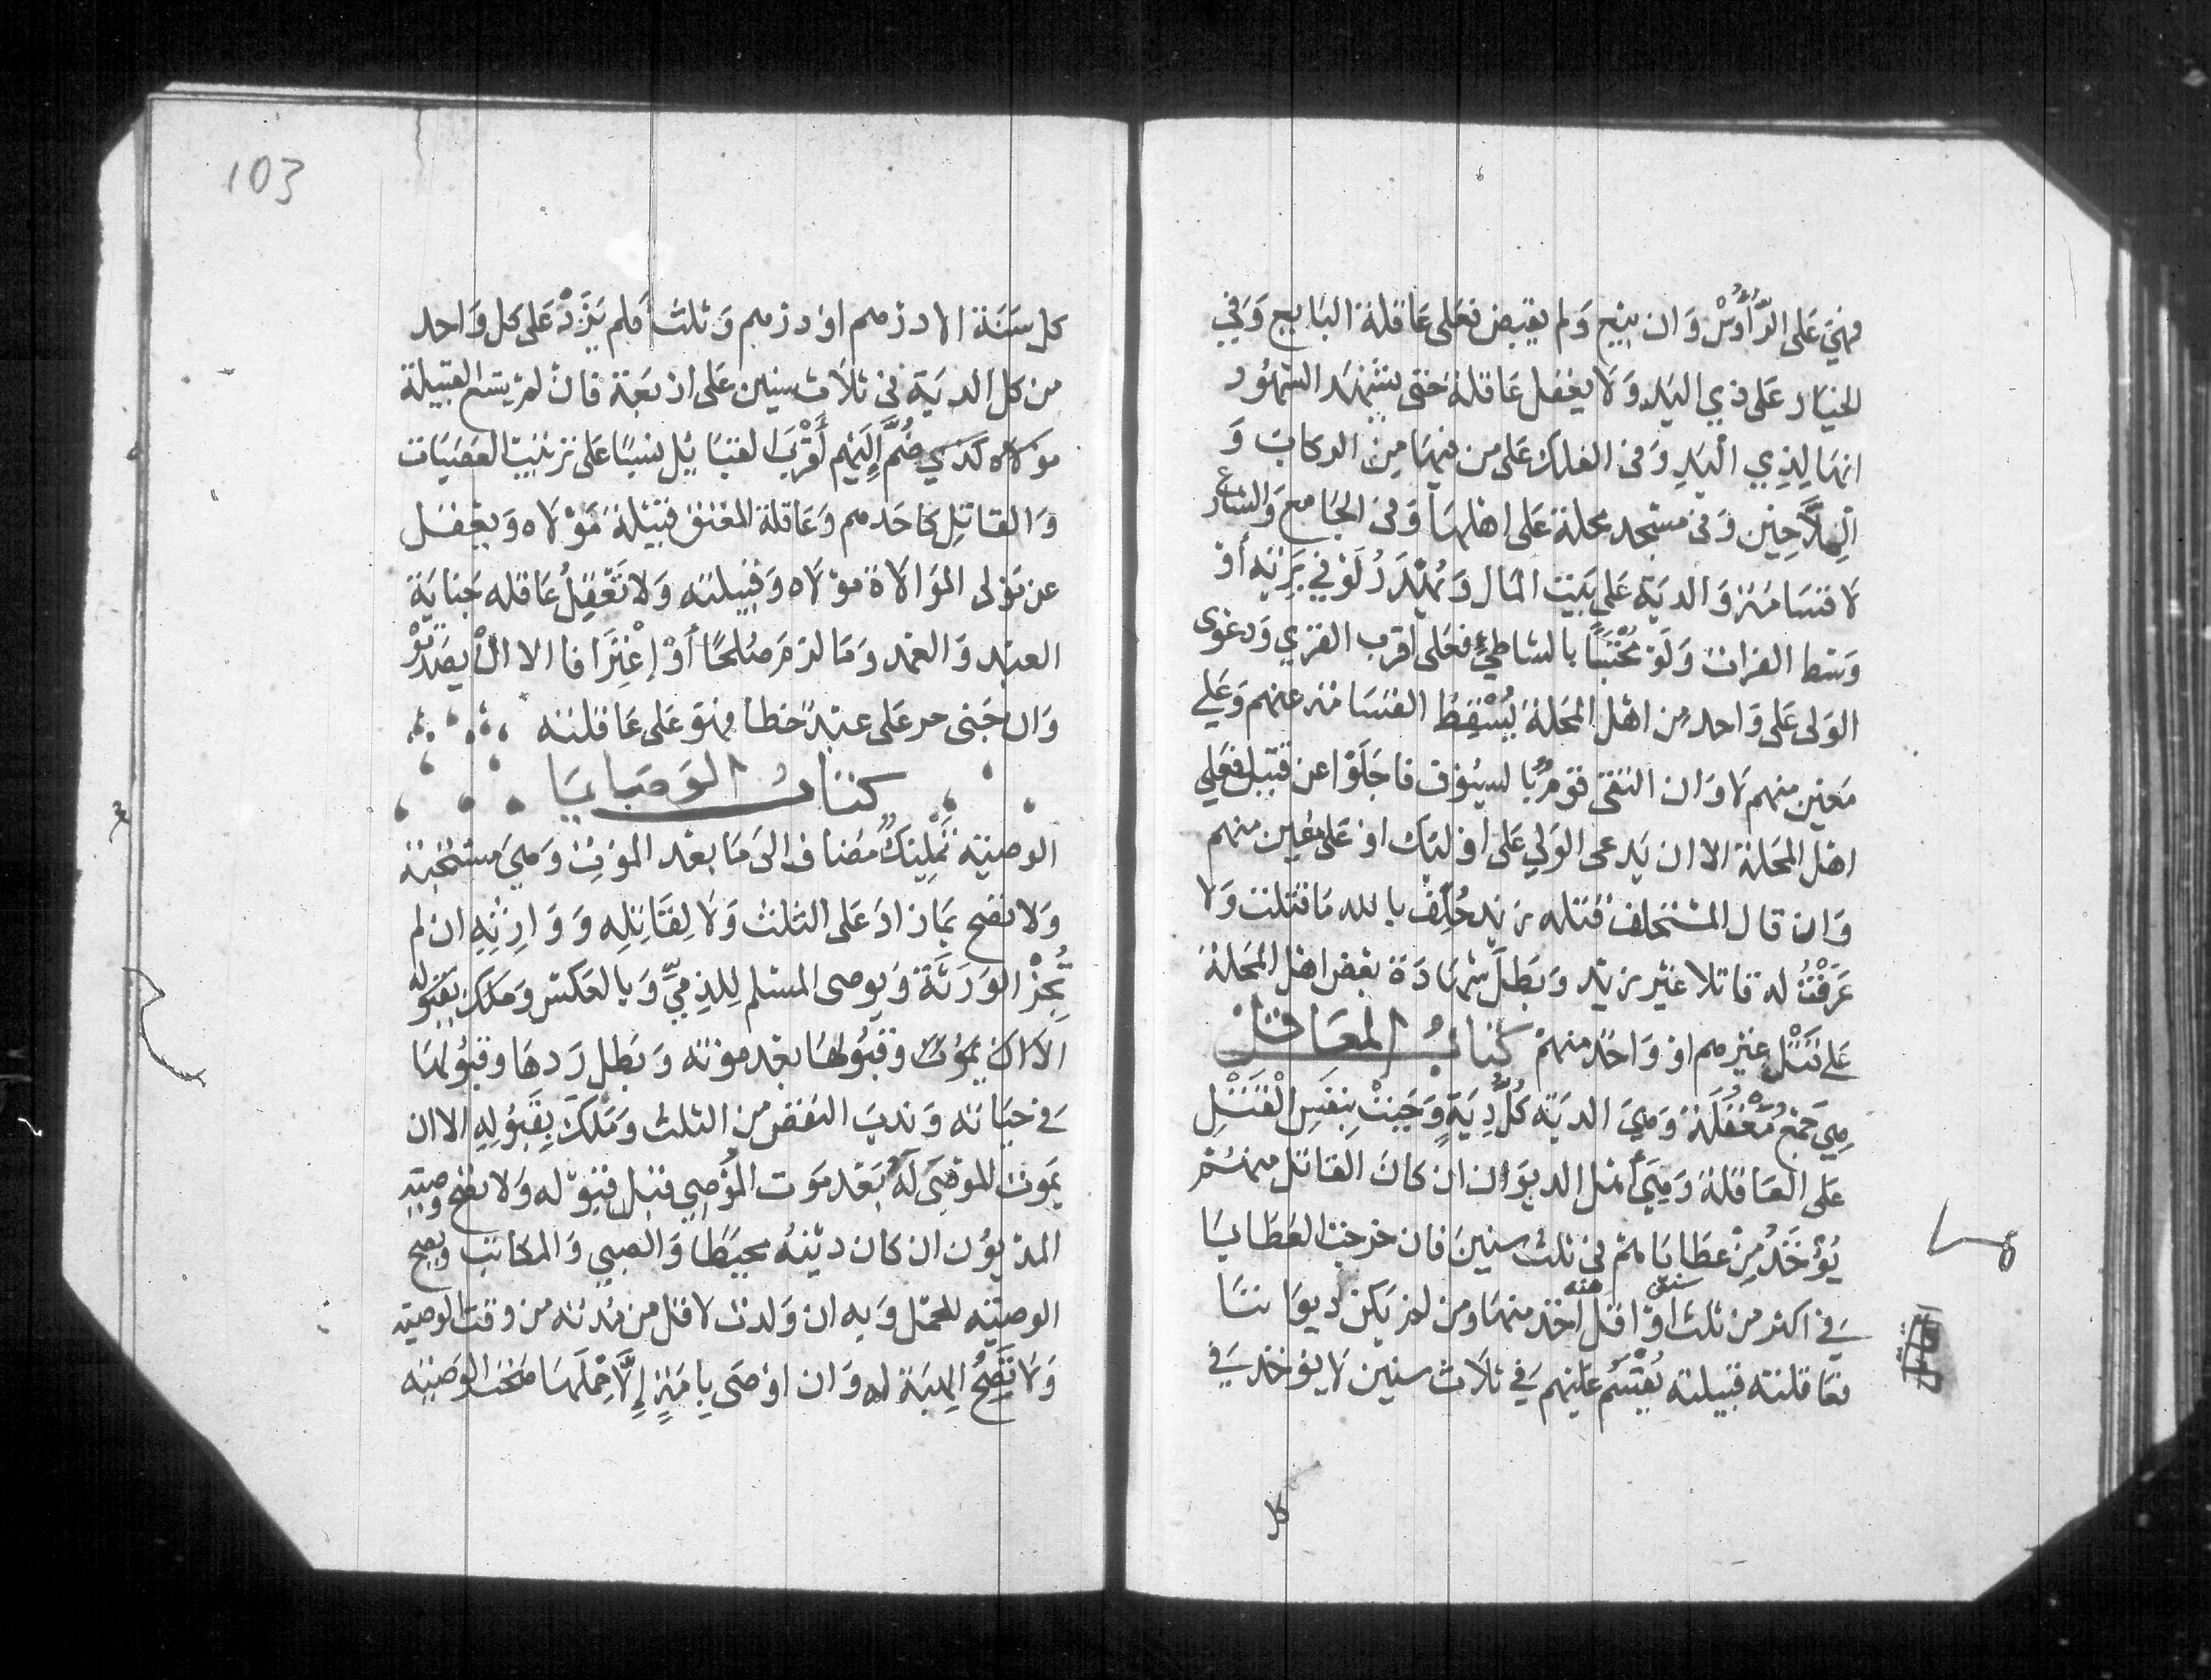 فهي على الرؤوس وان بيع ولم يقبض فعلى عاقلة البايع وفي
الخيار على ذي اليد ولا يعقل عاقلة حتى يشهد الشهود
انها لذي اليد وفي الفلك على من فيها من الركاب و
الملاحين وفي مسجد محلة على اهلها وفي الجامع والشارع
لا قسامة والدية على بيت المال ويهدر لو في برية أو
وسط الفرات ولو محتبسا بالشاطئ فعلى اقرب القرى ودعوى
الولى على واحد من اهل المحلة يسقط القسامة عنهم وعلى
معين منهم لا وان التقى قوم بالسيوف فاجلوا عن قتيل فعلى
اهل المحلة الا ان يدعى الولي على اولئك او على معين منهم
وان قال المستحلف قتله زيد حلف بالله ما قتلت ولا
عرفت له قاتلا غير زيد وبطل شهادة بعض اهل المحلة
على قتل غيرهم او واحد منهم كتاب المعاقل
هي جمع معقلة وهي الدية كل دية وجبت بنفس القتل
على العاقلة وهي أهل الديوان ان كان القاتل منهم
يؤخذ من عطاياهم في ثلث سنين فان خرجت العطايا
في اكثر من ثلث سنين او اقل اخذ منها ومن لم يكن ديوانيا
منه
فعاقلته قبيلته يقسم عليهم في ثلاث سنين لا يؤخذ في
كل
103
كل سنة الا درهم او درهم وثلث فلم يزد على كل واحد
من كل الدية في ثلاث سنين على اربعة فان لم يتسع القبيلة
لذلك ضم إليهم أقرب القبايل نسبا على ترتيب العصبات
والقاتل كاحدهم وعاقلة المعتق قبيلة مولاه ويعقل
عن مولى الموالاة مولاه وقبيلته ولا تعقل عاقله جناية
العبد والعمد وما لزم صلحا أو إعترافا الا ان يصدقوه
وان جنى حر على عبد خطا فهو على عاقلته
كتاب الوصايا
الوصية تمليك مضاف الى ما بعد الموت وهي مستحبة
ولا تصح بما زاد على الثلث ولا لقاتله ووارثه ان لم
تجز الورثة ويوصى المسلم للذمي وبالعكس وملك بقبوله
وقبولها بعد موته وبطل ردها وقبولها
في حياته وندب النقص من الثلث وملك بقبوله الا ان
يموت الموصى له بعد موت الموصي قبل قبوله ولا تصح وصية
المديون ان كان دينه محيطا والصبي والمكاتب ويصح
الوصية للحمل وبه ان ولدت لاقل من مدته من وقت الوصية
ولا تصح الهبة له وان اوصى بامة إلا حملها صحت الوصية